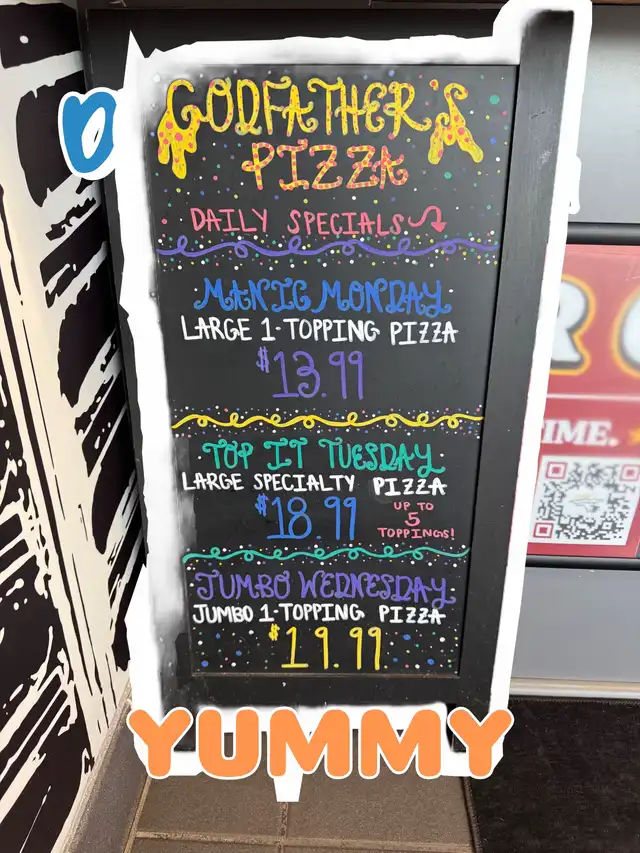 O
GODFATHER'S
PIZZA
DAILY SPECIALS
MANIC MONDAY
LARGE 1-TOPPING PIZZA
$13.99
TOP IT TUESDAY
LARGE SPECIALTY PIZZA
$18.99
UP TO
5
TOPPINGS!
JUMBO WEDNESDAY
JUMBO 1-TOPPING PIZZA
$19.99
YUMMY
IME.